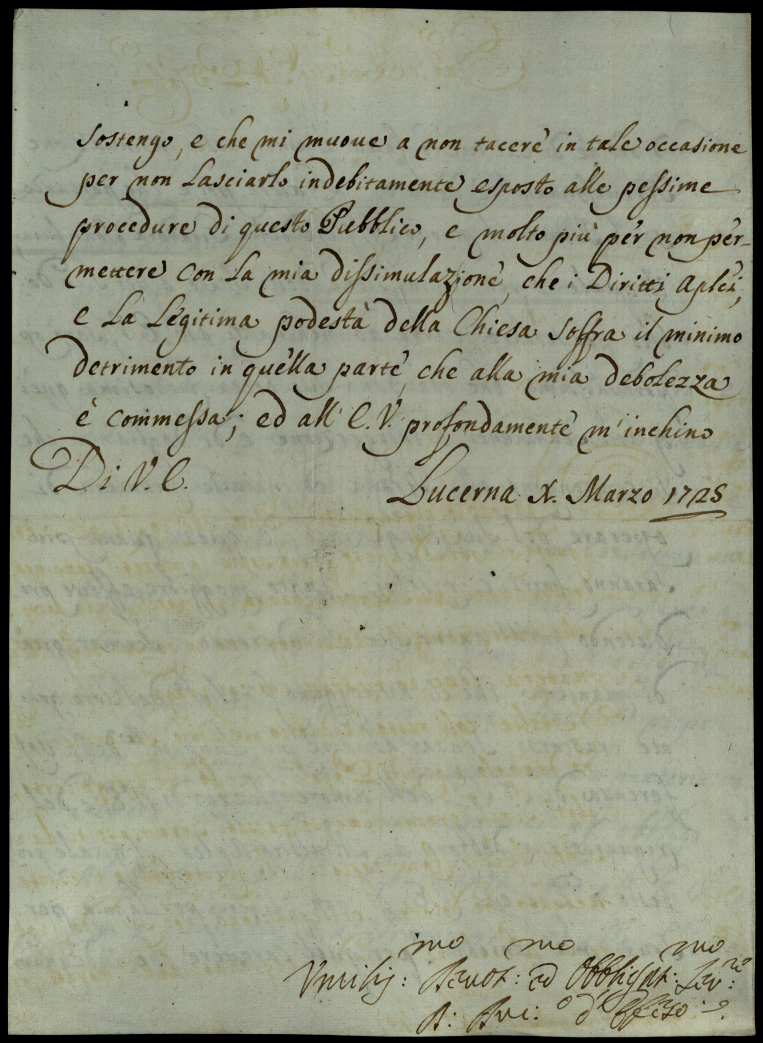 sostengo, e che mi muove a non tacere in tale occasione
per non lasciarlo indebitamente esposto alle pessime
procedure di questo Pubblico, e molto più per non per-
mettere con la mia dissimulazione, che i Diritti Aplci,
e la legitima podestà della Chiesa soffra il minimo
detrimento in quella parte, che alla mia debolezza
è commessa; ed all' E. V. profondamente m'inchino
Di V. E.
Lucerna X. Marzo 1725
Umilis:mo Devot:mo ed Obbligat:mo Ser:re